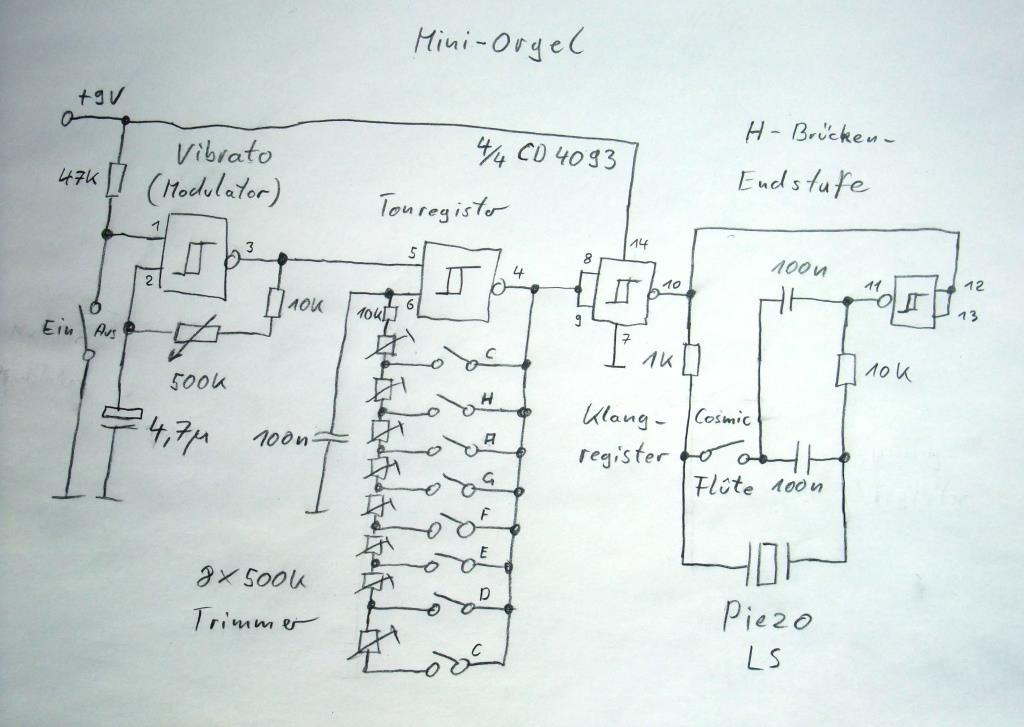 Mini-Orgel
+9V
Vibrato
(Modulator)
4/4 CD 4093
H-Brücken-
Endstufe
47K
Tonregister
1
2
3
5
6
4
8
9
14
10
7
11
12
13
10K
10K
100n
Ein
Aus
500K
1K
10K
4,7µ
100n
C
H
A
G
F
E
D
C
Klang-
register
Cosmic
Flûte
100n
8×500K
Trimmer
Piezo
LS